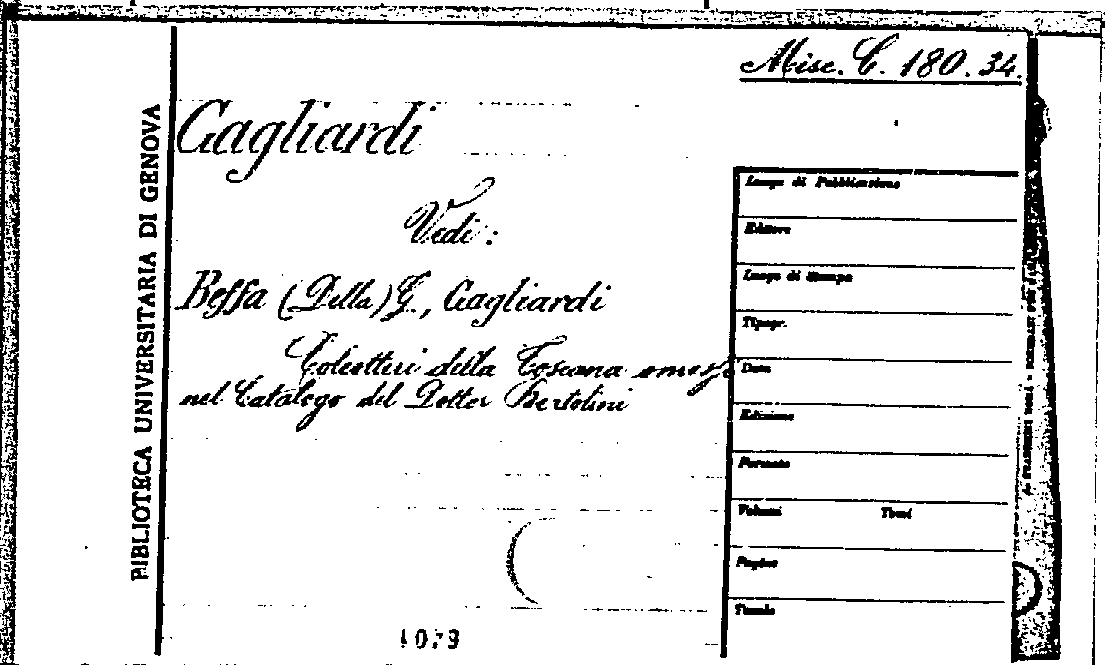 Misc. C. 180. 34.
Gagliardi
Vedi:
Beffa (Della) G., Gagliardi
Coleotteri della Toscana omessi
nel Catalogo del Dottor Bertolini
BIBLIOTECA UNIVERSITARIA DI GENOVA
Luogo di Pubblicazione
Editore
Luogo di Stampa
Tipogr.
Data
Edizione
Formato
Volumi Tomi
Pagine
Tavole